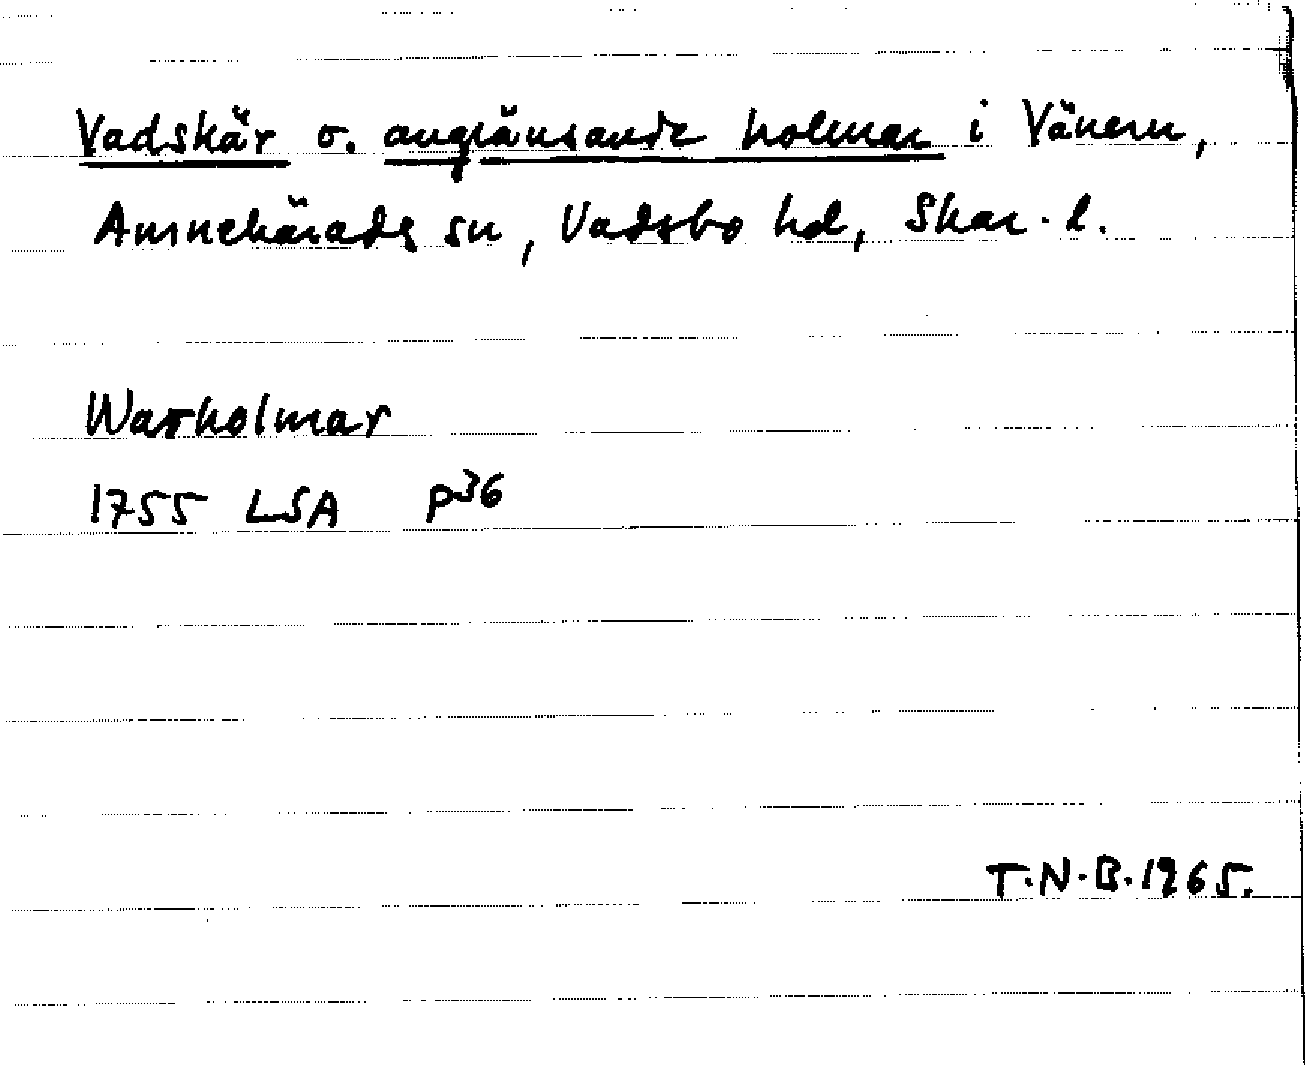 Vadskär o. angränsande holmar i Vänern,
Amnehärads sn, Vadsbo hd, Skar. l.
Warholmar
1755 LSA P36
T.N.B.1965.